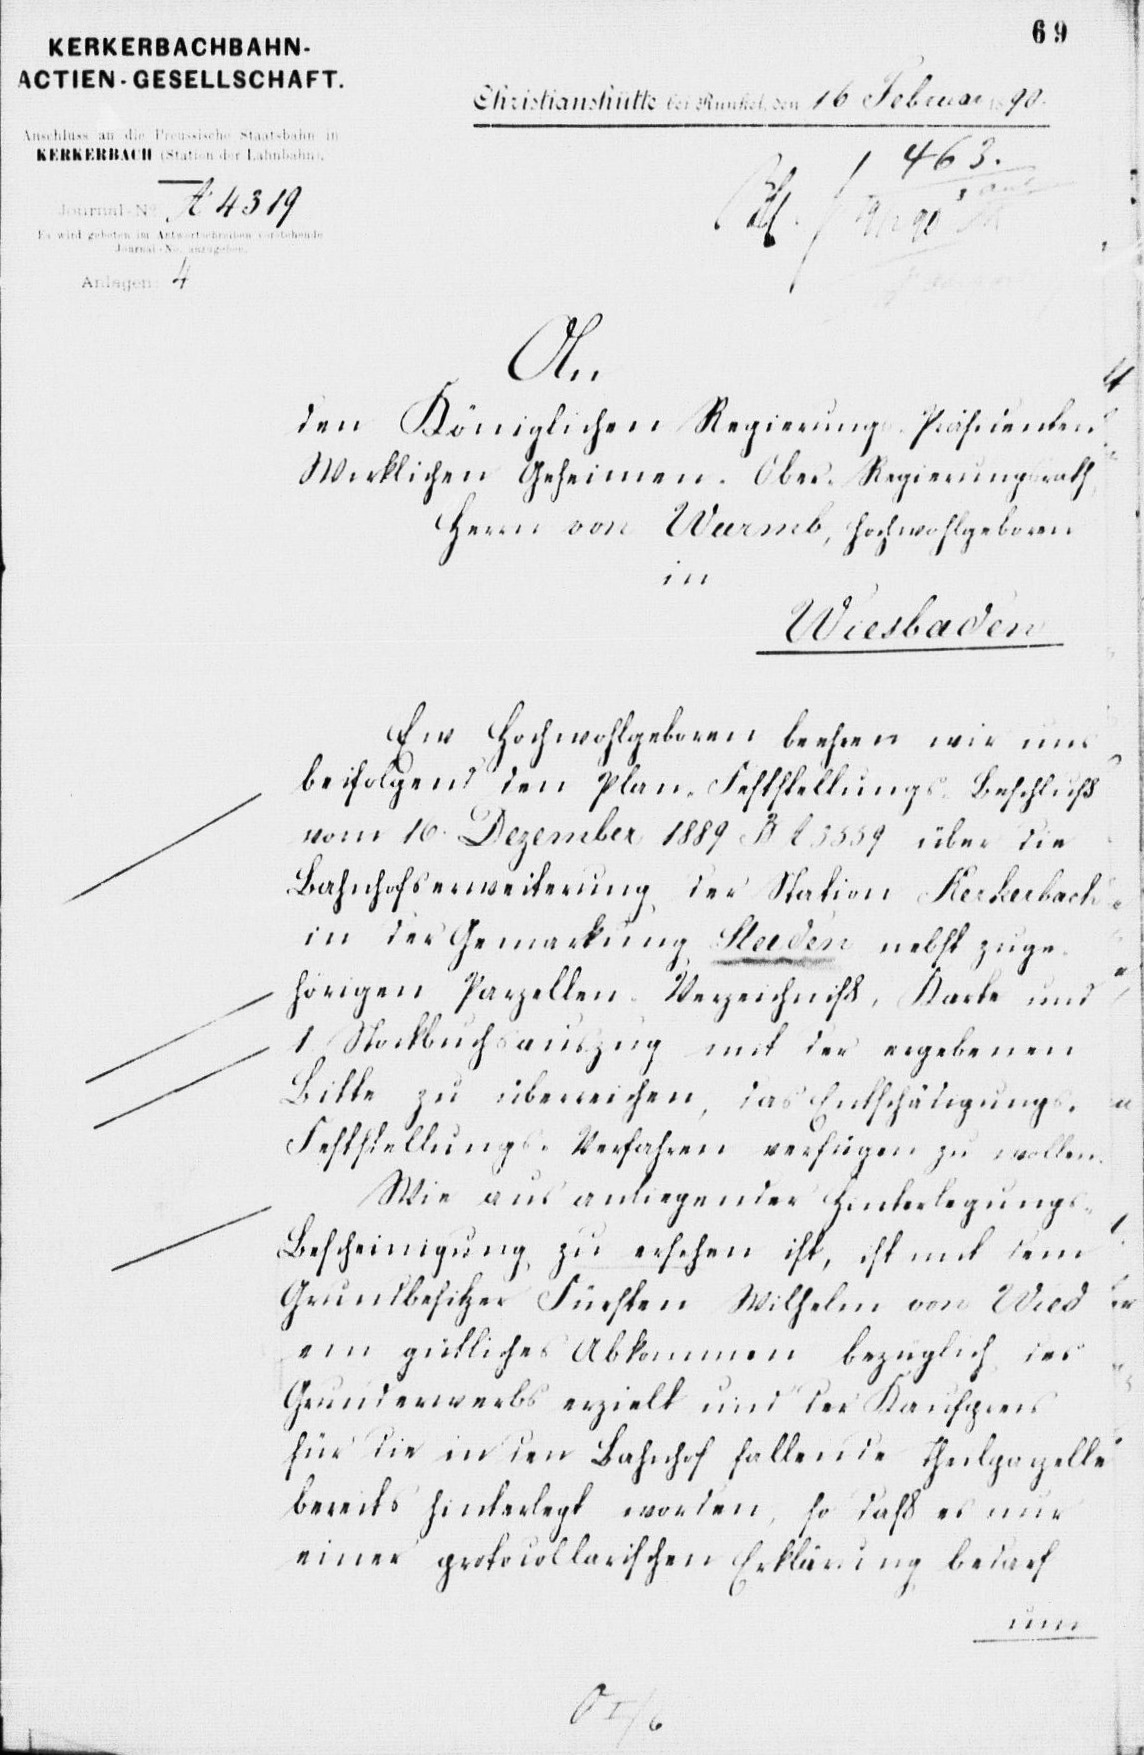 69
KERKERBACHBAHN-
ACTIEN-GESELLSCHAFT.
Christianshütte bei Runkel, den 16 Februar 1890.
Anschluss an die Preussische Staatsbahn in
KERKERBACH (Station der Lahnbahn).
Journal-No. A 4319
Es wird gebeten im Antwortschreiben vorstehende
Journal-No. anzugeben.
Anlagen: 4
463.
An
den Königlichen Regierungs-Präsidenten
Wirklichen Geheimen-Ober-Regierungsrath
Herrn von Wurmb, Hochwohlgeboren
in
Wiesbaden
Ew Hochwohlgeboren beehren wir uns
beifolgend den Plan-Feststellungs-Beschluß
vom 16. Dezember 1889 über die
Bahnhofserweiterung der Station Kerkerbach
in der Gemarkung Steeden nebst zuge-
hörigen Parzellen-Verzeichniß, Karte und
1 Stockbuchsauszug mit der ergebenen
Bitte zu überreichen, das Entschädigungs-
Feststellungs-Verfahren verfügen zu wollen.
Wie aus anliegender Hinterlegungs-
Bescheinigung zu ersehen ist, ist mit dem
Grundbesitzer Fürsten Wilhelm von Wied
ein gütliches Abkommen bezüglich des
Grunderwerbs erzielt und der Kaufpreis
für die in den Bahnhof fallende Theilparzelle
bereits hinterlegt worden, so daß es nur
einer protocollarischen Erklärung bedarf
um